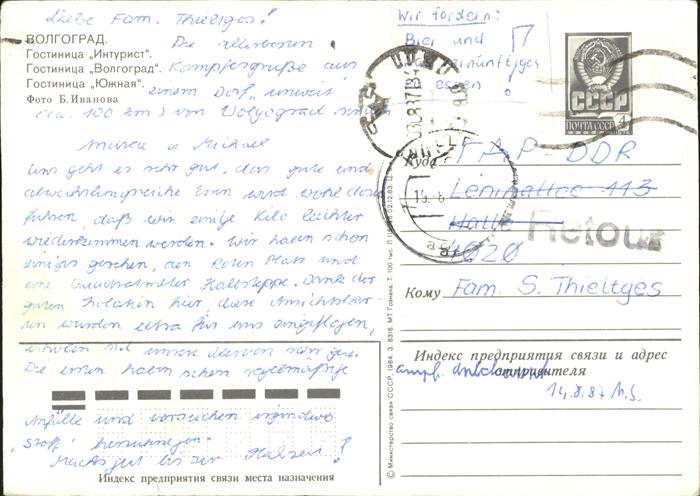 Liebe Fam. Thieltges!
ВОЛГОГРАД.
Гостиница „Интурист“.
Гостиница „Волгоград“.
Гостиница „Южная“.
Фото Б. Иванова
Die allerbesten
Kampfesgrüße aus
einem Dorf, unweit
(ca. 100 km) von Wolgograd senden
Michael
Uns geht es sehr gut, das gute und
abwechslungsreiche Essen wird wohl dazu
führen, daß wir einige Kilo leichter
wiederkommen werden. Wir haben schon
einiges gesehen, den Roten Platz und
eine Quadratmeter Halbsteppe. Dank der
guten hier, diese
wurden extra für uns eingeflogen,
unsere sehr gut.
Die ersten haben schon regelmäßige
Anfälle und versuchen irgendwo
„Stoff“ herzunehmen.
Macht's gut bis zur
Индекс предприятия связи места назначения
Wir fordern:
Bier und
vernünftiges
Essen!
ПОЧТА СССР 4
Куда
TAP-DDR
Leninallee 113
Halle
4020
Retour
Кому Fam. S. Thieltges
Индекс предприятия связи и адрес
отправителя
14.8.87
© Министерство связи СССР, 1984. З. 8316. МТ Гознака.